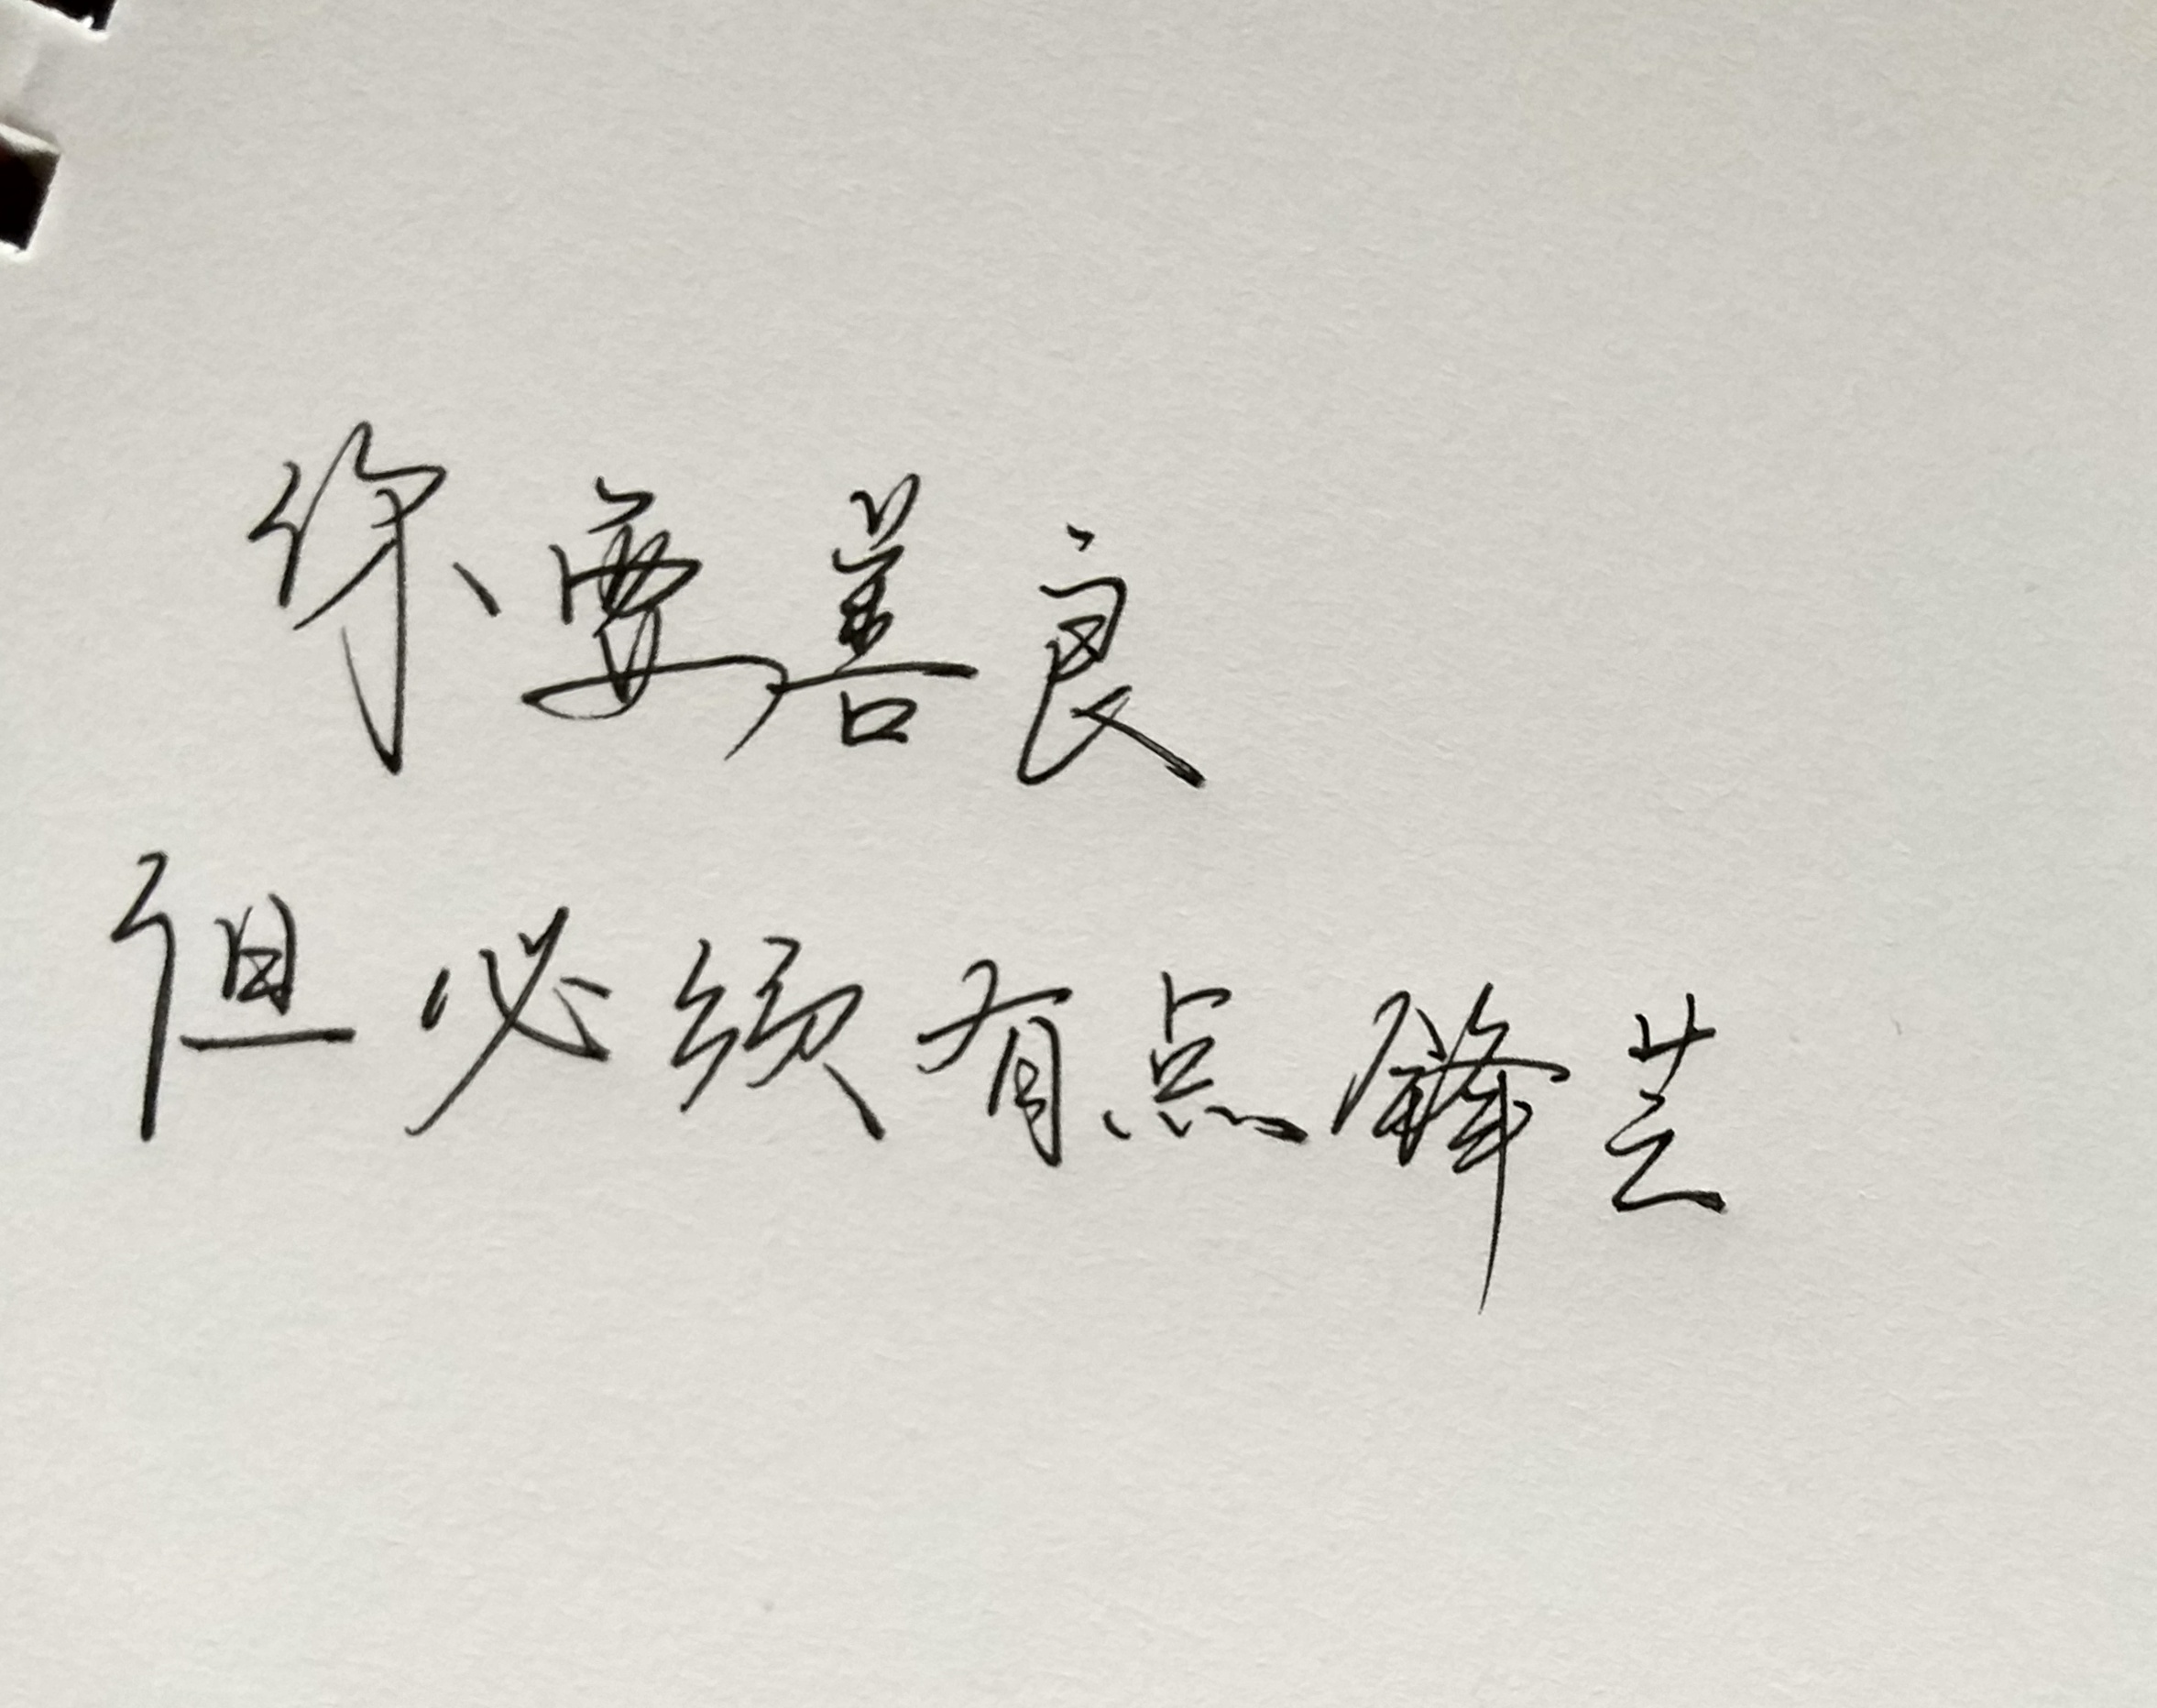 你要善良
但必须有点锋芒